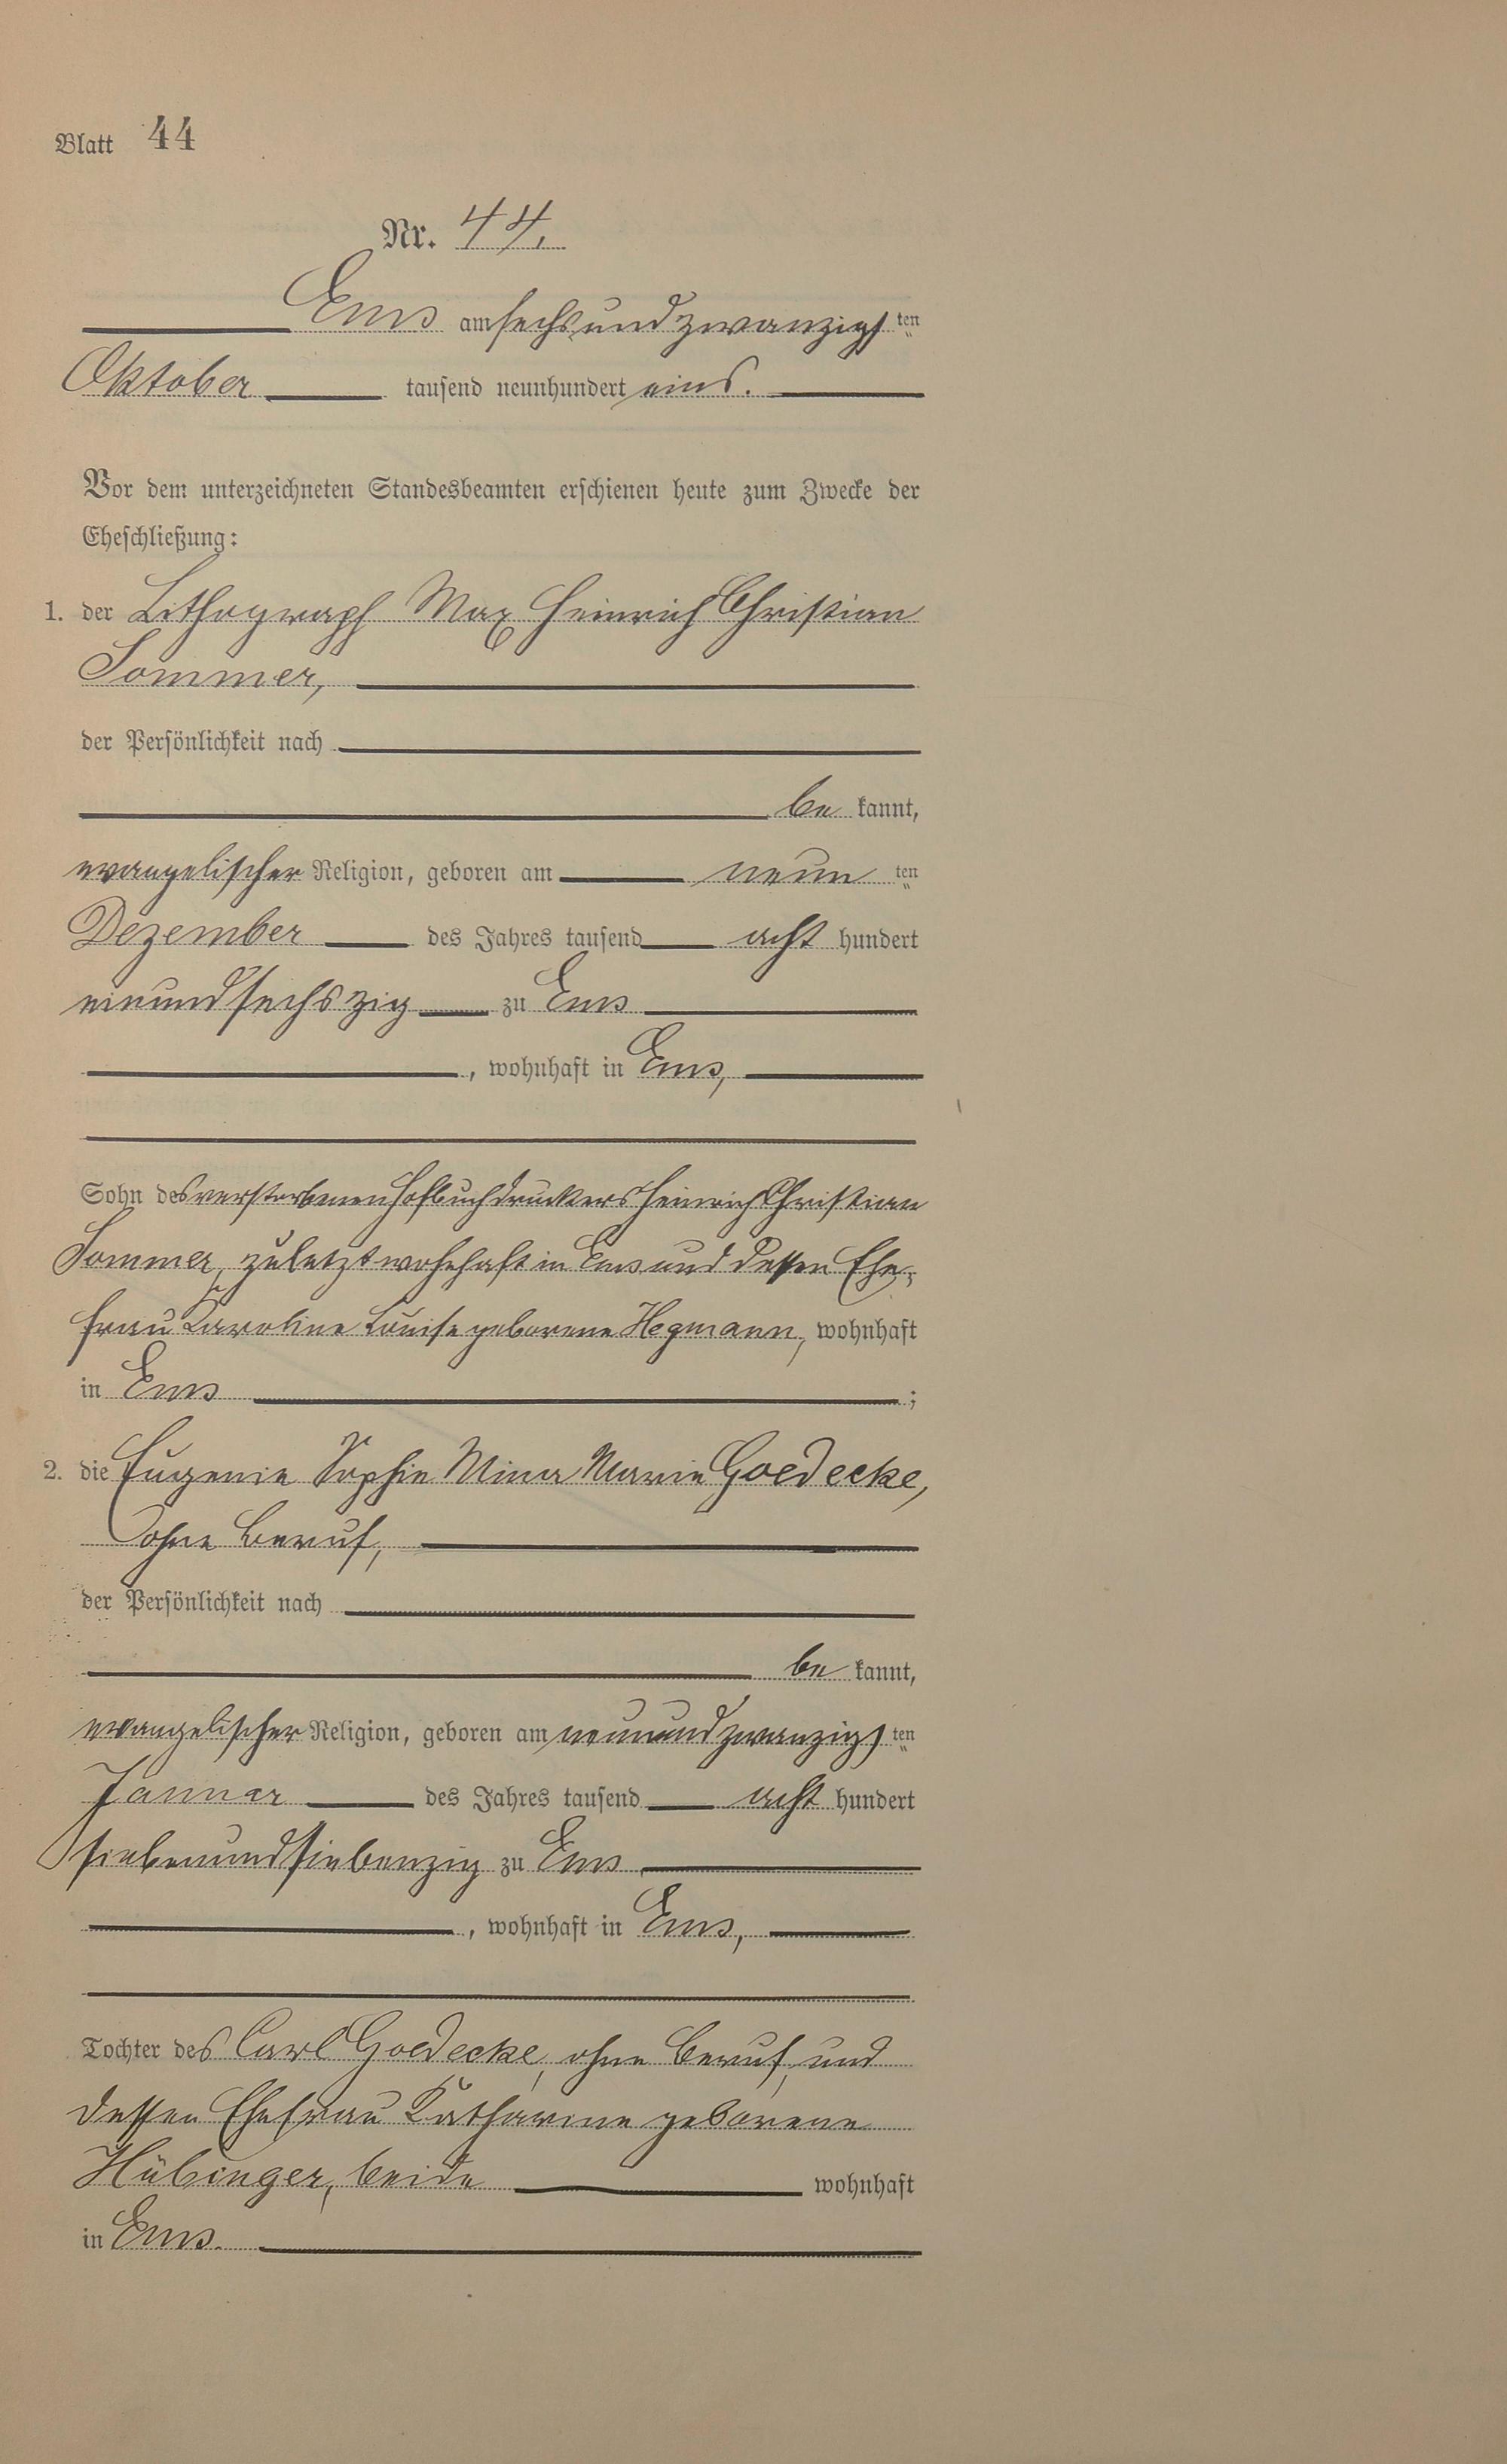 Blatt 44
Nr. 44.
Ems am sechsundzwanzigsten
Oktober tausend neunhundert eins.
Vor dem unterzeichneten Standesbeamten erschienen heute zum Zwecke der
Eheschließung:
1. der Lithograph Max Heinrich Christian
Sommer,
der Persönlichkeit nach
be kannt,
evangelischer Religion, geboren am neun ten
Dezember des Jahres tausend acht hundert
einundsechszig zu Ems
, wohnhaft in Ems,
Sohn des verstorbenen Hofbuchdruckers Heinrich Christian
Sommer, zuletzt wohnhaft in Ems und dessen Ehe-
frau Karoline Louise geborene Hegmann, wohnhaft
in Ems ;
2. die Eugenie Sophie Mina Marie Goedecke,
ohne Beruf,
der Persönlichkeit nach
be kannt,
evangelischer Religion, geboren am neunundzwanzigsten
Januar des Jahres tausend acht hundert
siebenundsiebenzig zu Ems
, wohnhaft in Ems,
Tochter des Carl Goedecke, ohne Beruf, und
dessen Ehefrau Katharine geborene
Hübinger, beide wohnhaft
in Ems.